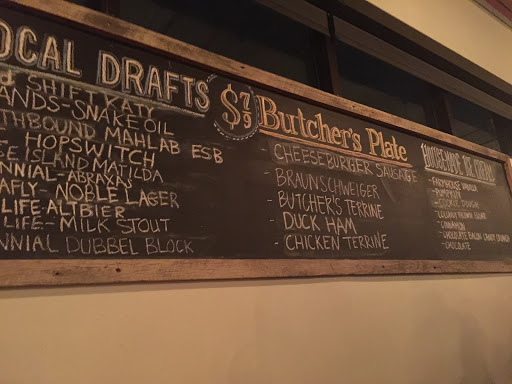 OCAL DRAFTS
SHIFT KATY
ANDS-SNAKE OIL
THBOUND MAHLAB
HOPSWITCH ESB
ISLAND MATILDA
NNIAL-ABRAXAS
AFLY-NOBLE LAGER
LIFE ALTBIER
LIFE-MILK STOUT
NNIAL DUBBEL BLOCK
$7/9
Butcher's Plate
- CHEESEBURGER SAUSAGE
- BRAUNSCHWEIGER
- BUTCHER'S TERRINE
- DUCK HAM
- CHICKEN TERRINE
HOUSEMADE ICE CREAM
- COOKIE DOUGH
- CINNAMON
- CHOCOLATE BACON CANDY CRUNCH
- CHOCOLATE